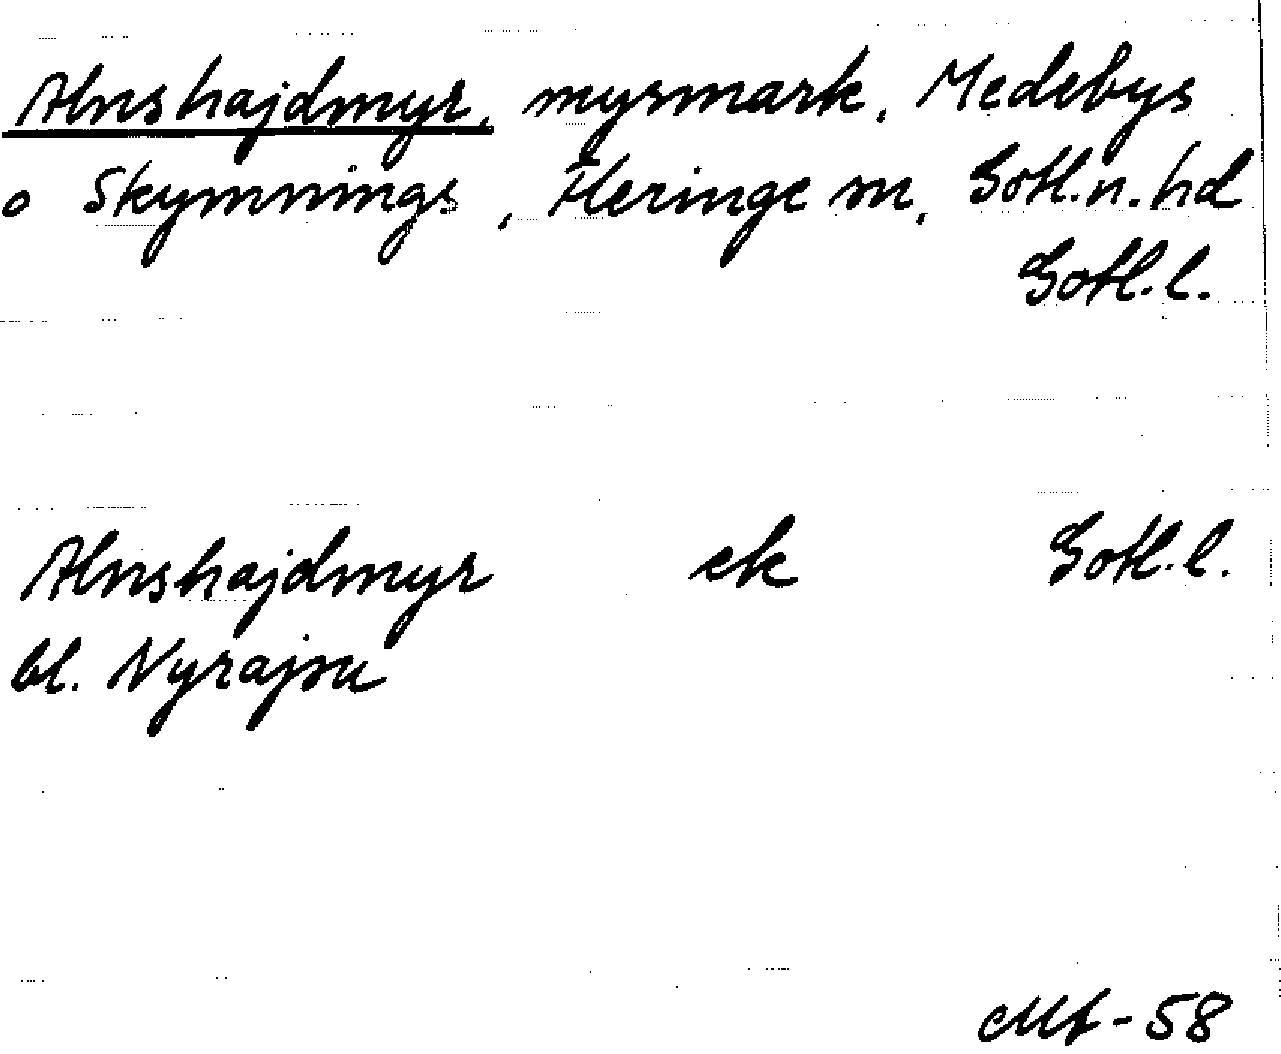 Alnshajdmyr, myrmark, Medebys
o Skymnings, Fleringe sn, Gotl.n.hd
Gotl.l.
Alnshajdmyr ek Gotl.l.
bl. Nyrajsu
-58